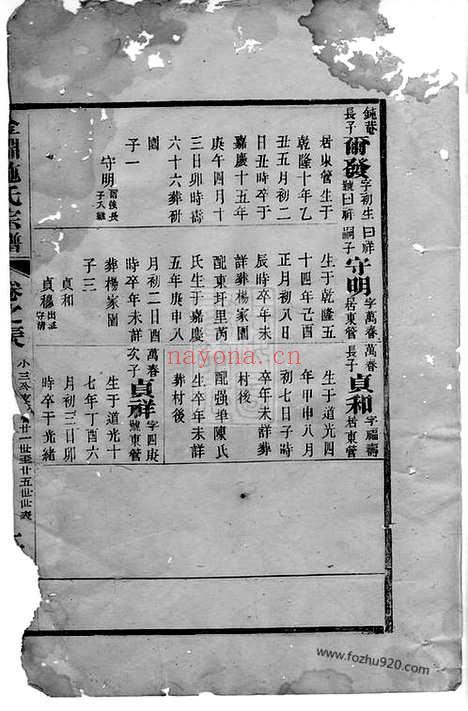 鈍菴長子爾發字初生曰祥號曰祥
居東管生于
乾隆十年乙
丑五月初二
日丑時卒于
嘉慶十五年
庚午四月十
三日卯時壽
六十六葬祔
園
子一
守明
嗣子守明字萬春居東管
生于乾隆五
十四年己酉
正月初八日
辰時卒年未
詳葬楊家園
配東圩里芮
氏生于嘉慶
五年庚申八
月初二日酉
時卒年未詳
葬楊家園
子三
貞和
貞穆出繼守清
萬春長子貞和字福壽居東管
生于道光四
年甲申八月
初七日子時
卒年未詳葬
村後
配强埠陳氏
生卒年未詳
葬村後
萬春次子貞祥字四庚號東管
生于道光十
七年丁酉六
月初三日卯
時卒于光緒
淵施氏宗譜
卷之
廿一世至廿五世世表
nayona.cn
www.fozhu920.com